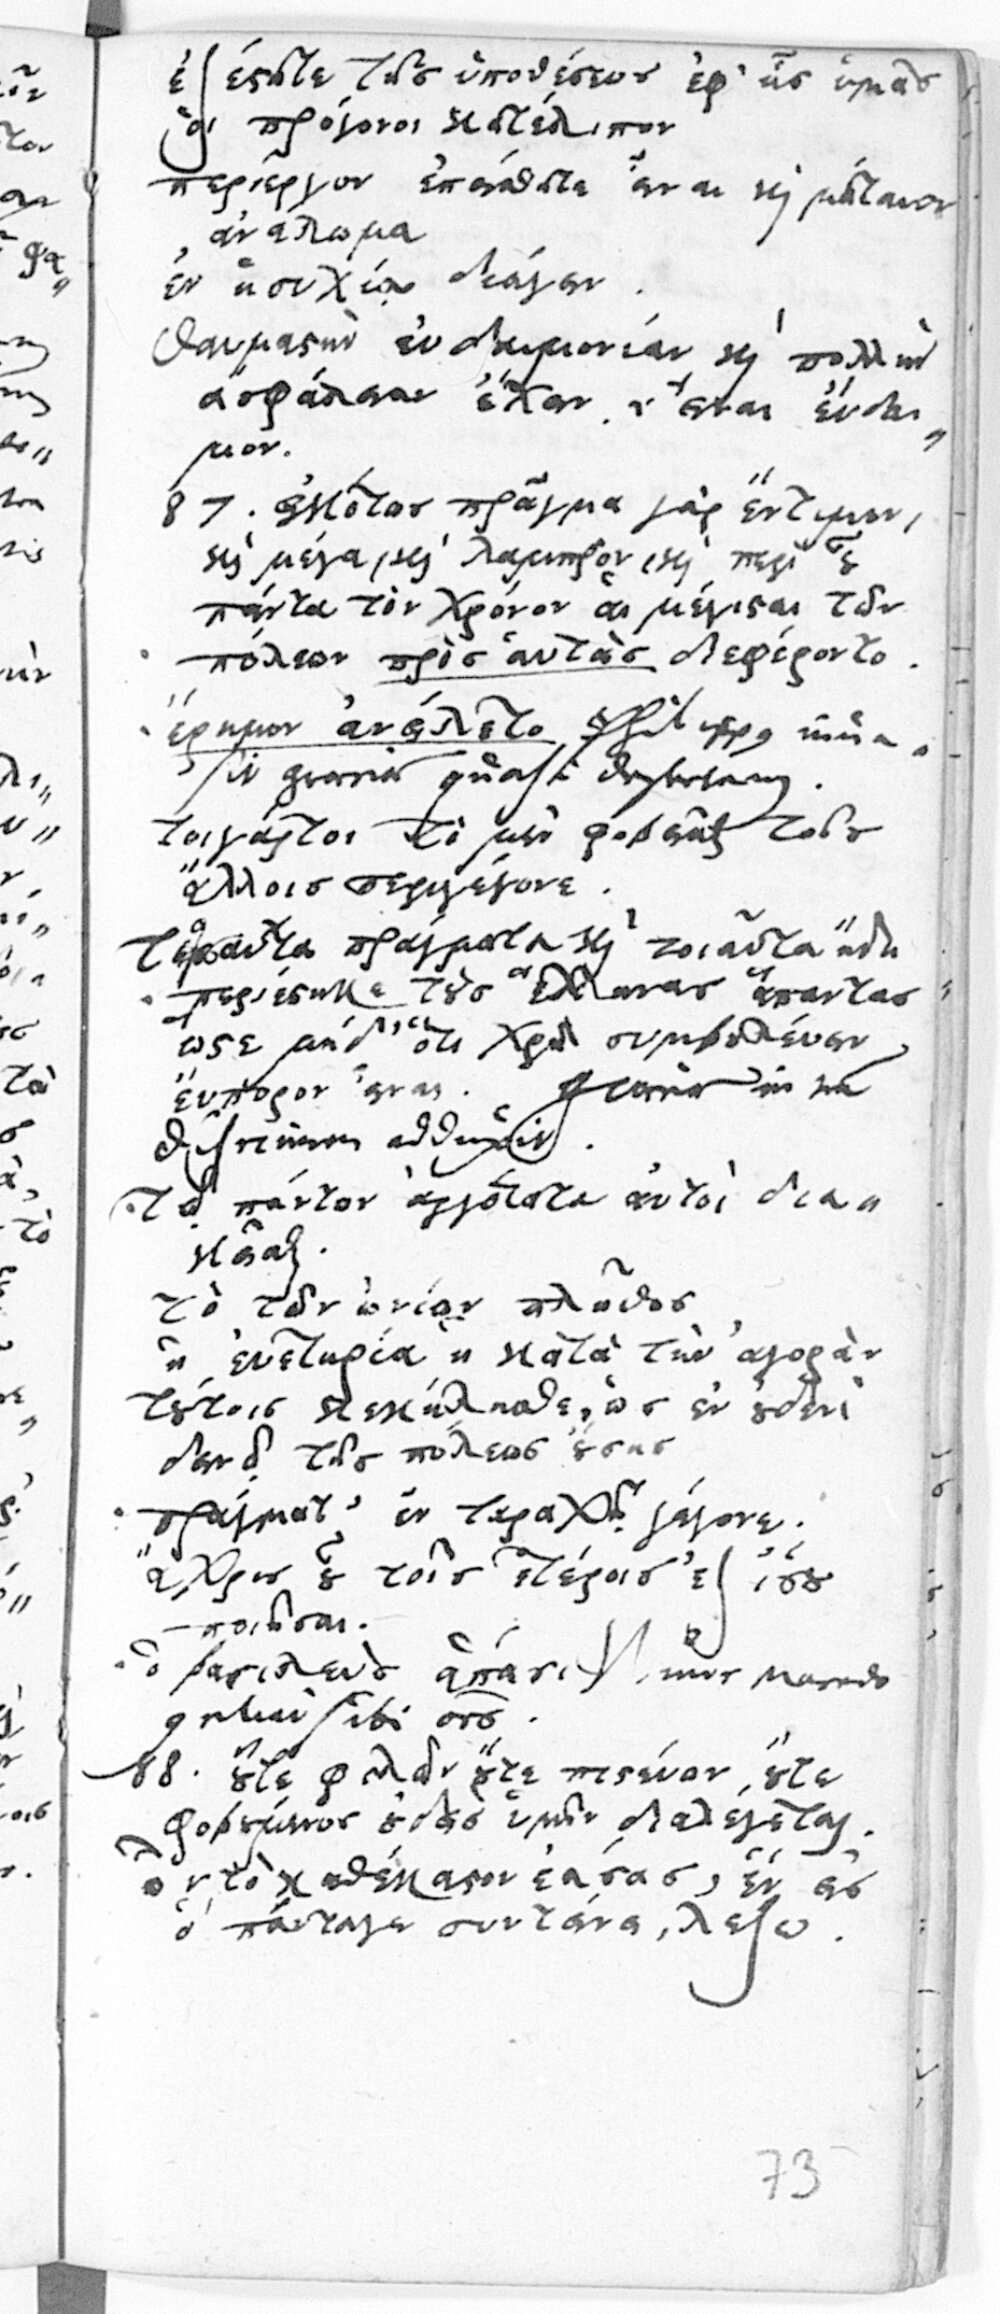 ἐξέστητε τῆς ὑποθέσεως ἐφ' ἧς ὑμᾶς
οἱ πρόγονοι κατέλιπον
περίεργον ἐπείσθητε εἶναι καὶ μάταιον
ἀνάλωμα
ἐν ἡσυχίᾳ διάγειν .
θαυμαστὴν εὐδαιμονίαν καὶ πολλὴν
ἀσφάλειαν ἔχειν . εἶναι εὔδαι„
μον.
87 . εἰκότως πρᾶγμα γὰρ ἔντιμον,
καὶ μέγα, καὶ λαμπρὸν, καὶ περὶ οὗ
πάντα τὸν χρόνον αἱ μέγισται τῶν
πόλεων πρὸς αὑτὰς διεφέροντο .
ἔρημον ἀνείλετο
τοιγάρτοι τὸ μὲν φοβεῖσθαι τοὺς
ἄλλοις περιγέγονε .
τοσαῦτα πράγματα καὶ τοιαῦτα ἤδη
περιέστηκε τοὺς Ἕλληνας ἅπαντας
ὥστε μηδ' ὅτι χρὴ συμβουλεύειν
εὔπορον εἶναι .
τῷ πάντων ἀργότατα αὐτοὶ δια„
κεῖσθαι .
τὸ τῶν ὠνίων πλῆθος
ἡ εὐετηρία ἡ κατὰ τὴν ἀγορὰν
τούτοις κεκήλησθε, ὡς ἐν οὐδενὶ
δεινῷ τῆς πόλεως οὔσης
πράγματ' ἐν ταραχῇ γέγονε .
ἄχρις οὗ τοῖς ἑτέροις ἐξ ἴσου
ποιῆσαι.
ὁ βασιλεὺς ἅπασι
88 . οὔτε φιλῶν οὔτε πιστεύων, οὔτε
φοβούμενος οὐδεὶς ὑμῖν διαλέγεται .
ὧν τὸ καθέκαστον ἐάσας, ἓν εἰς
ὃ πάνταγεν συντείνει, λέξω .
73